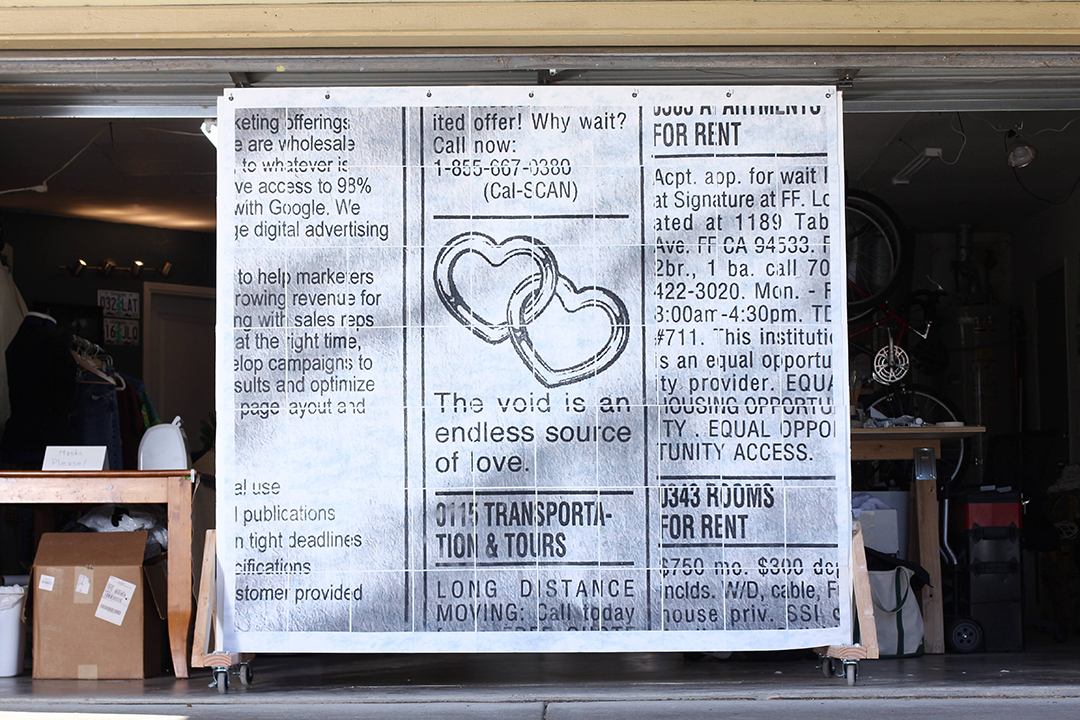 keting offerings
e are wholesale
to whatever is
ve access to 98%
with Google. We
ge digital advertising
to help marketers
rowing revenue for
ng with sales reps
at the right time,
elop campaigns to
sults and optimize
page layout and
al use
l publications
n tight deadlines
cifications
stomer provided
ited offer! Why wait?
Call now:
1-855-667-0380
(Cal-SCAN)
The void is an
endless source
of love.
0115 TRANSPORTA-
TION & TOURS
LONG DISTANCE
MOVING: Call today
APARTMENTS
FOR RENT
Acpt. app. for wait l
at Signature at FF. Lo
ated at 1189 Tab
Ave. FF CA 94533.
2br., 1 ba. call 70
422-3020. Mon. - F
8:00am-4:30pm. TD
#711. This instituti
is an equal opportu
ity provider. EQUA
HOUSING OPPORTU
TY . EQUAL OPPO
TUNITY ACCESS.
0343 ROOMS
FOR RENT
$750 mo. $300 dep
nclds. W/D, cable, F
house priv. SSI
Masks
Please!
032 LAT
16 JLQ